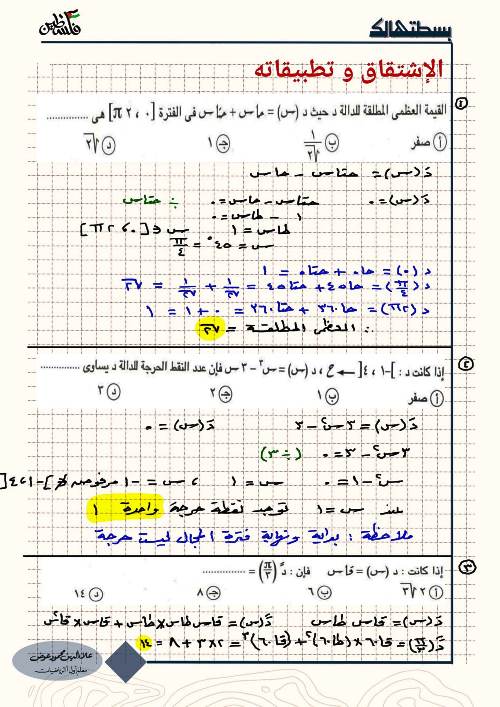 بسطتهالك
فلسطين
الإشتقاق و تطبيقاته
١ القيمة العظمى المطلقة للدالة د حيث د (س) = حاس + حتاس فى الفترة [٠ ، ٢ π] هى ................
أ صفر ب ١/√٢ ج ١ د √٢
دَ(س) = حتاس - حاس
دَ(س) = ٠ حتاس - حاس = ٠ ÷ حتاس
١ - طاس = ٠
طاس = ١ س ∈ [٠ ، ٢π]
س = ٤٥° = π/٤
د(٠) = حا٠ + حتا٠ = ١
د(π/٤) = حا٤٥ + حتا٤٥ = ١/√٢ + ١/√٢ = √٢
د(٢π) = حا٣٦٠ + حتا٣٦٠ = ٠ + ١ = ١
∴ العظمى المطلقة = √٢
٢ إذا كانت د : ]-١ ، ٤[ ← ح ، د (س) = س٣ - ٣ س فإن عدد النقط الحرجة للدالة د يساوى ................
أ صفر ب ١ ج ٢ د ٣
دَ(س) = ٣س٢ - ٣ دَ(س) = ٠
٣س٢ - ٣ = ٠ (÷ ٣)
س٢ - ١ = ٠ س = ١ ، س = -١ مرفوضه ∉ ]-١ ، ٤[
عند س = ١ توجد نقطة حرجة واحدة ١
ملاحظة : بداية ونهاية فترة المجال ليست حرجة
٣ إذا كانت : د (س) = قاس فإن : دً (π/٣) = ................
أ ٢√٣ ب ٦ ج ٨ د ١٤
دَ(س) = قاس طاس دً(س) = قاس طاس × طاس + قاس × قا٢س
دً(π/٣) = قا٦٠ × (طا٦٠)٢ + (قا٦٠)٣ = ٢×٣ + ٨ = ١٤
علاء الدين محمود عوض
معلم أول أ الرياضيات